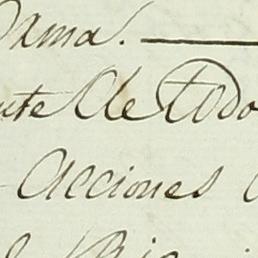 Dama. —
ute de todo
Acciones